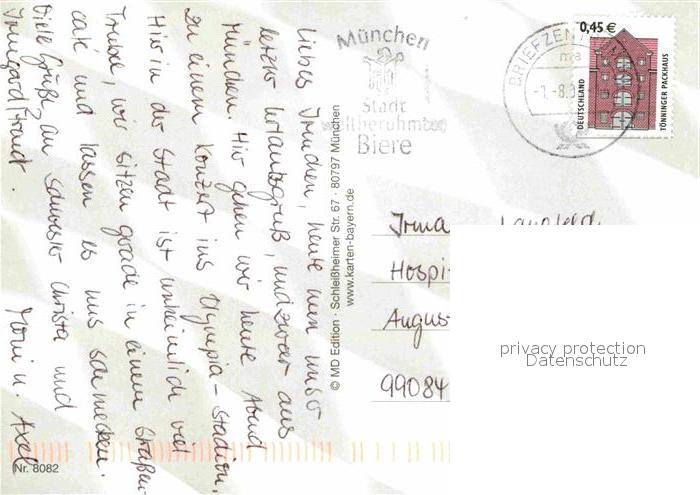 Liebes Irmchen, heute nun unser
letzter Urlaubsgruß, und zwar aus
München. Hier gehen wir heute Abend
zu einem Konzert ins Olympia-Stadion.
Hier in der Stadt ist unheimlich viel
Trubel, wir sitzen grade in einem Straßen-
café und lassen es uns schmecken.
Viele Grüße an Schwester Christa und
Irmgard Traut.
Moni u. Axel
Nr. 8082
© MD Edition · Schleißheimer Str. 67 · 80797 München
www.karten-bayern.de
München
Stadt
weltberühmter
Biere
BRIEFZENT
ma
-1.-8.0
0,45 €
DEUTSCHLAND
TÖNNINGER PACKHAUS
Irma
Hospi
Augus
99084
privacy protection
Datenschutz